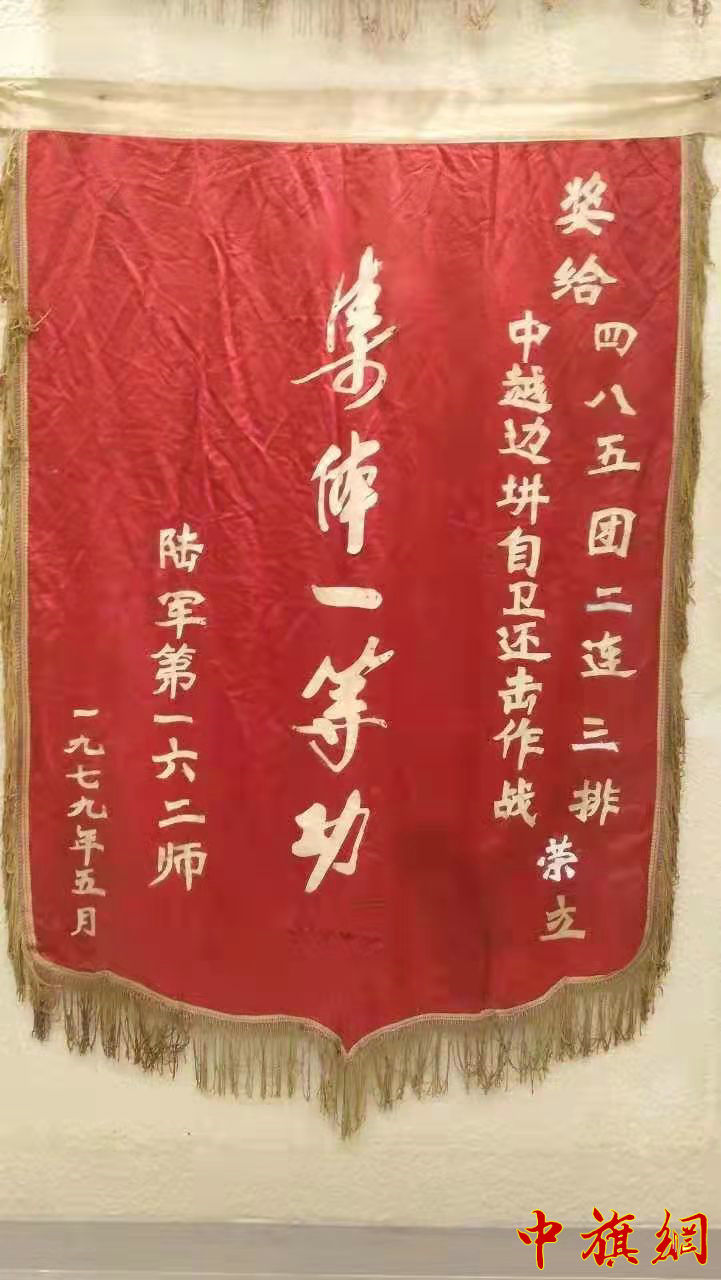 奖给四八五团二连三排
中越边圸自卫还击作战
荣立
集体一等功
陆军第一六二师
一九七九年五月
中旗網